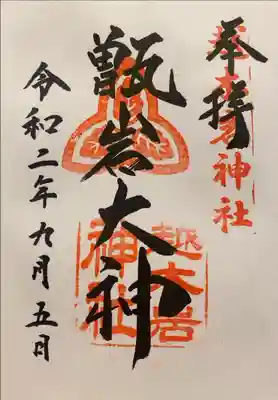 奉拝
越木岩神社
甑岩大神
越木岩
神社
令和二年九月五日